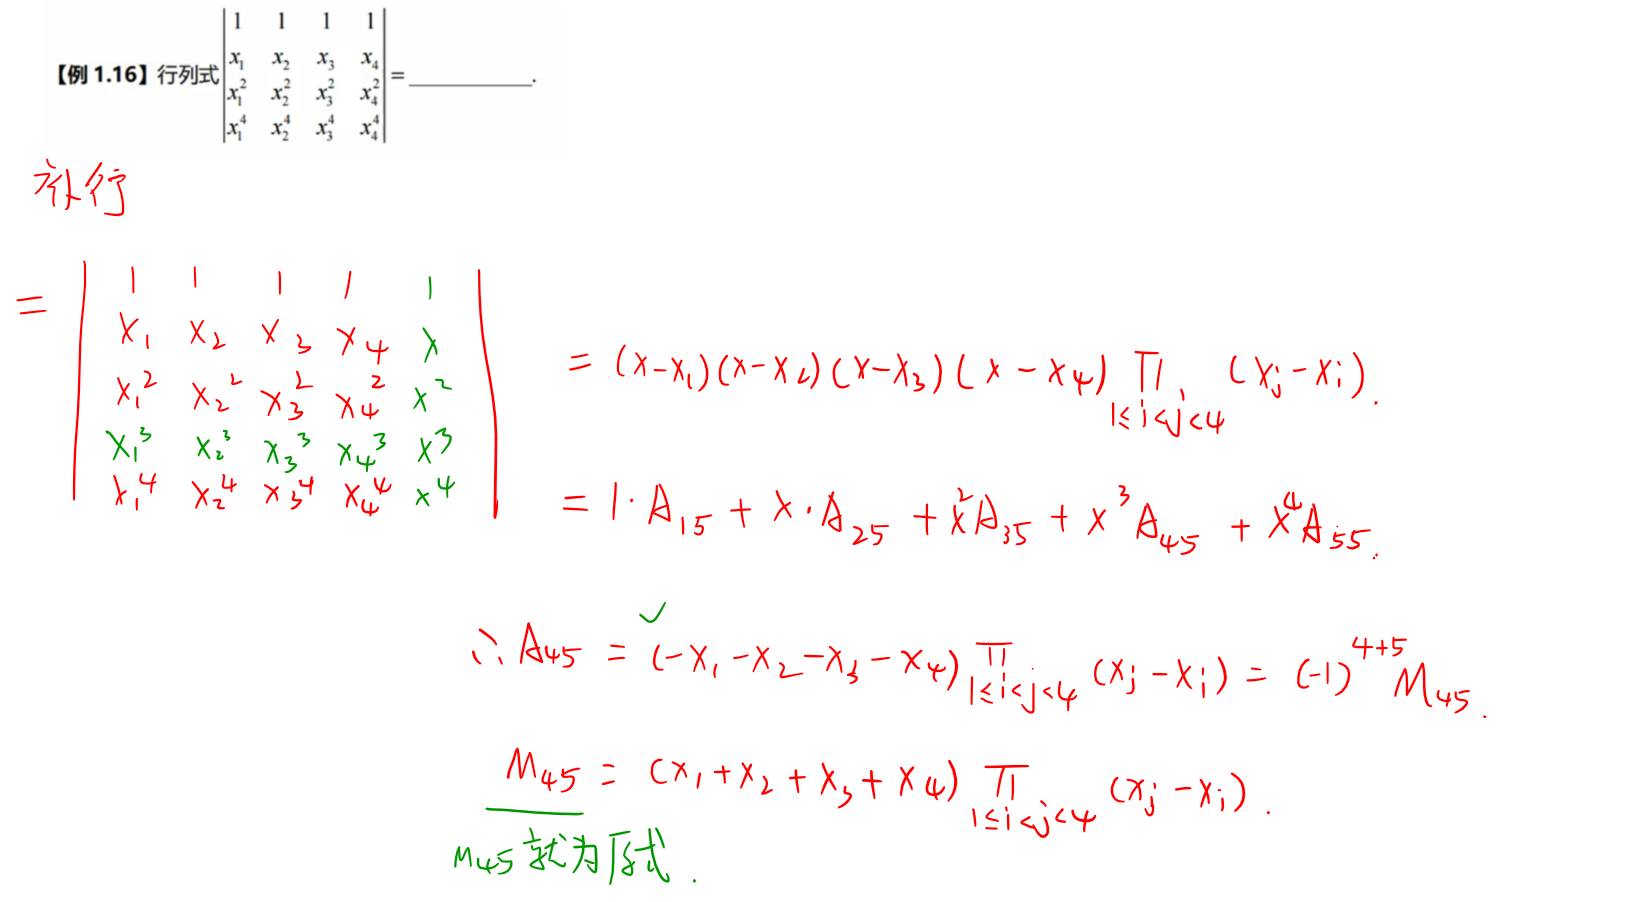 1 1 1 1
x₁ x₂ x₃ x₄
【例 1.16】行列式 = ________.
x₁² x₂² x₃² x₄²
x₁⁴ x₂⁴ x₃⁴ x₄⁴
补行
= | 1 1 1 1 1
x₁ x₂ x₃ x₄ x
x₁² x₂² x₃² x₄² x²
x₁³ x₂³ x₃³ x₄³ x³
x₁⁴ x₂⁴ x₃⁴ x₄⁴ x⁴ |
= (x-x₁)(x-x₂)(x-x₃)(x-x₄) ∏ (xⱼ-xᵢ).
1≤i<j<4
= 1·A₁₅ + x·A₂₅ + x²A₃₅ + x³A₄₅ + x⁴A₅₅.
✓
∴ A₄₅ = (-x₁-x₂-x₃-x₄) ∏ (xⱼ-xᵢ) = (-1)⁴⁺⁵M₄₅.
1≤i<j<4
M₄₅ = (x₁+x₂+x₃+x₄) ∏ (xⱼ-xᵢ).
1≤i<j<4
M₄₅就为原式.